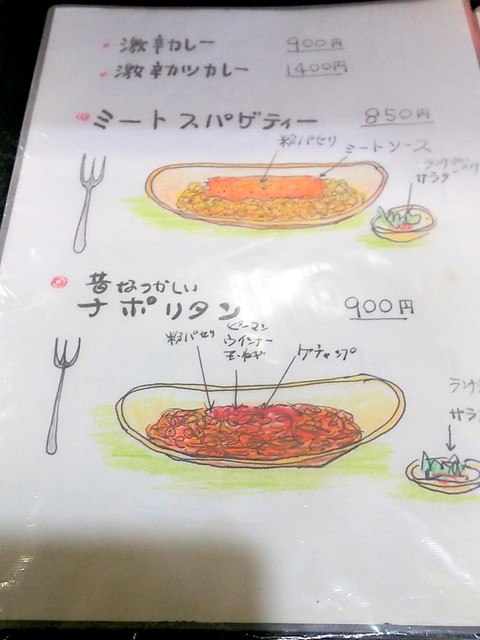 激辛カレー 900円
激辛カツカレー 1400円
ミートスパゲティー 850円
粉パセリ
ミートソース
サラダ
昔なつかしい
ナポリタン 900円
粉パセリ
ピーマン
ウインナー
玉ねぎ
ケチャップ